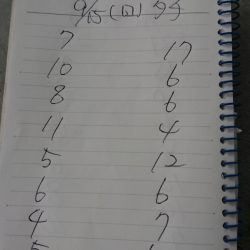 9/15(日)
7 17
10 6
8 6
11 4
5 12
6 6
4 7
5